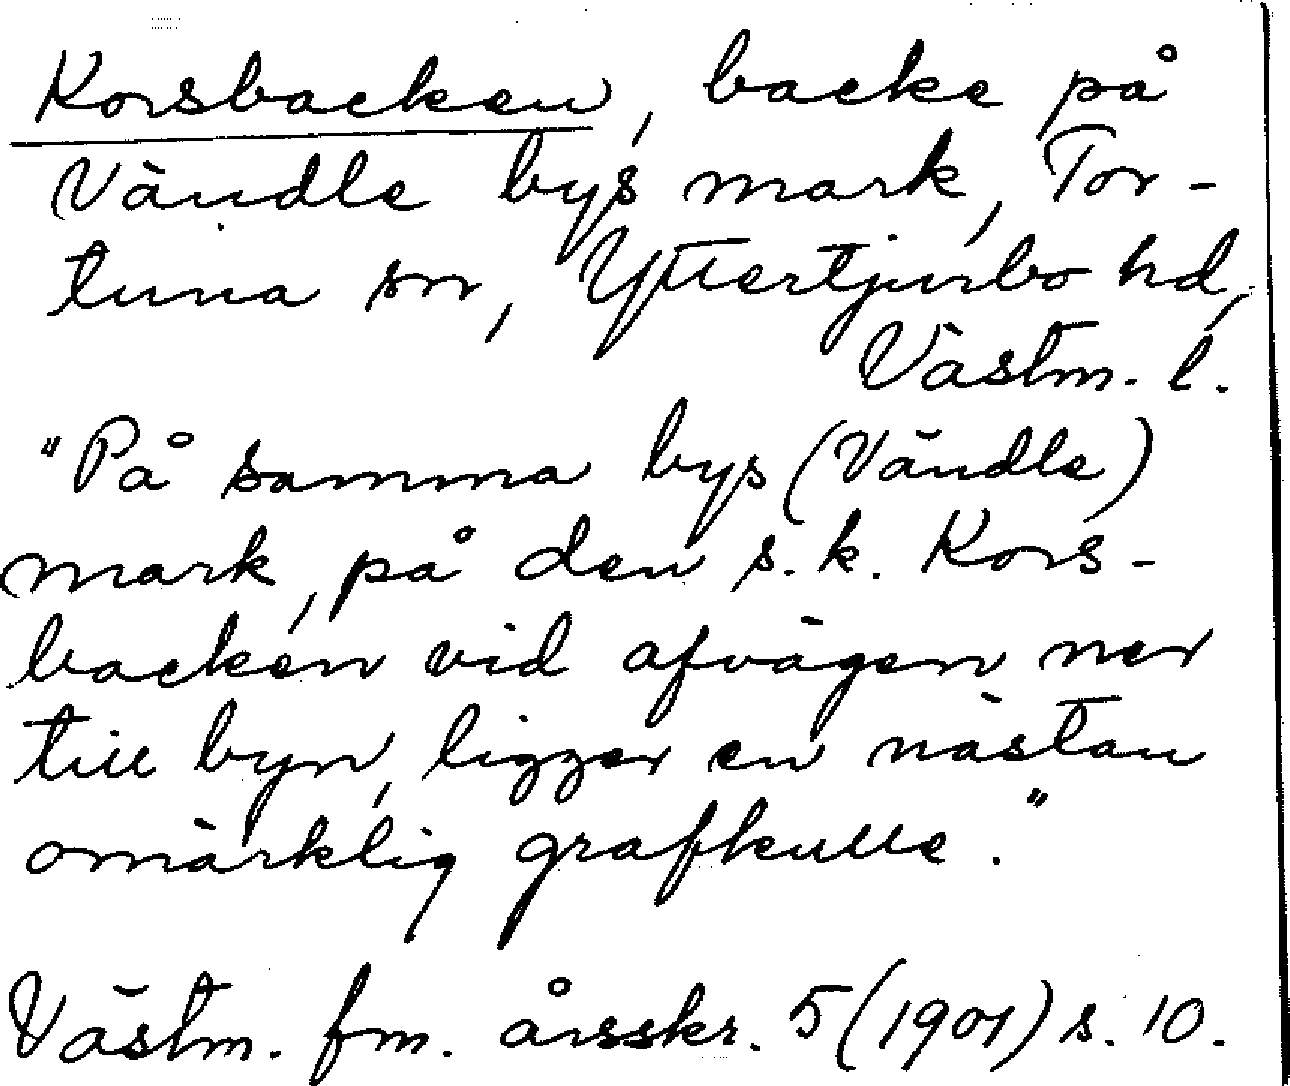 Korsbacken, backe på
Vändle bys mark, Tor-
tuna sn, Yttertjurbo hd,
Västm. l.
"På samma bys (Vändle)
mark, på den s.k. Kors-
backen vid afvägen ner
till byn, ligger en nästan
omärklig grafkulle."
Västm. fm. årsskr. 5 (1901) s. 10.